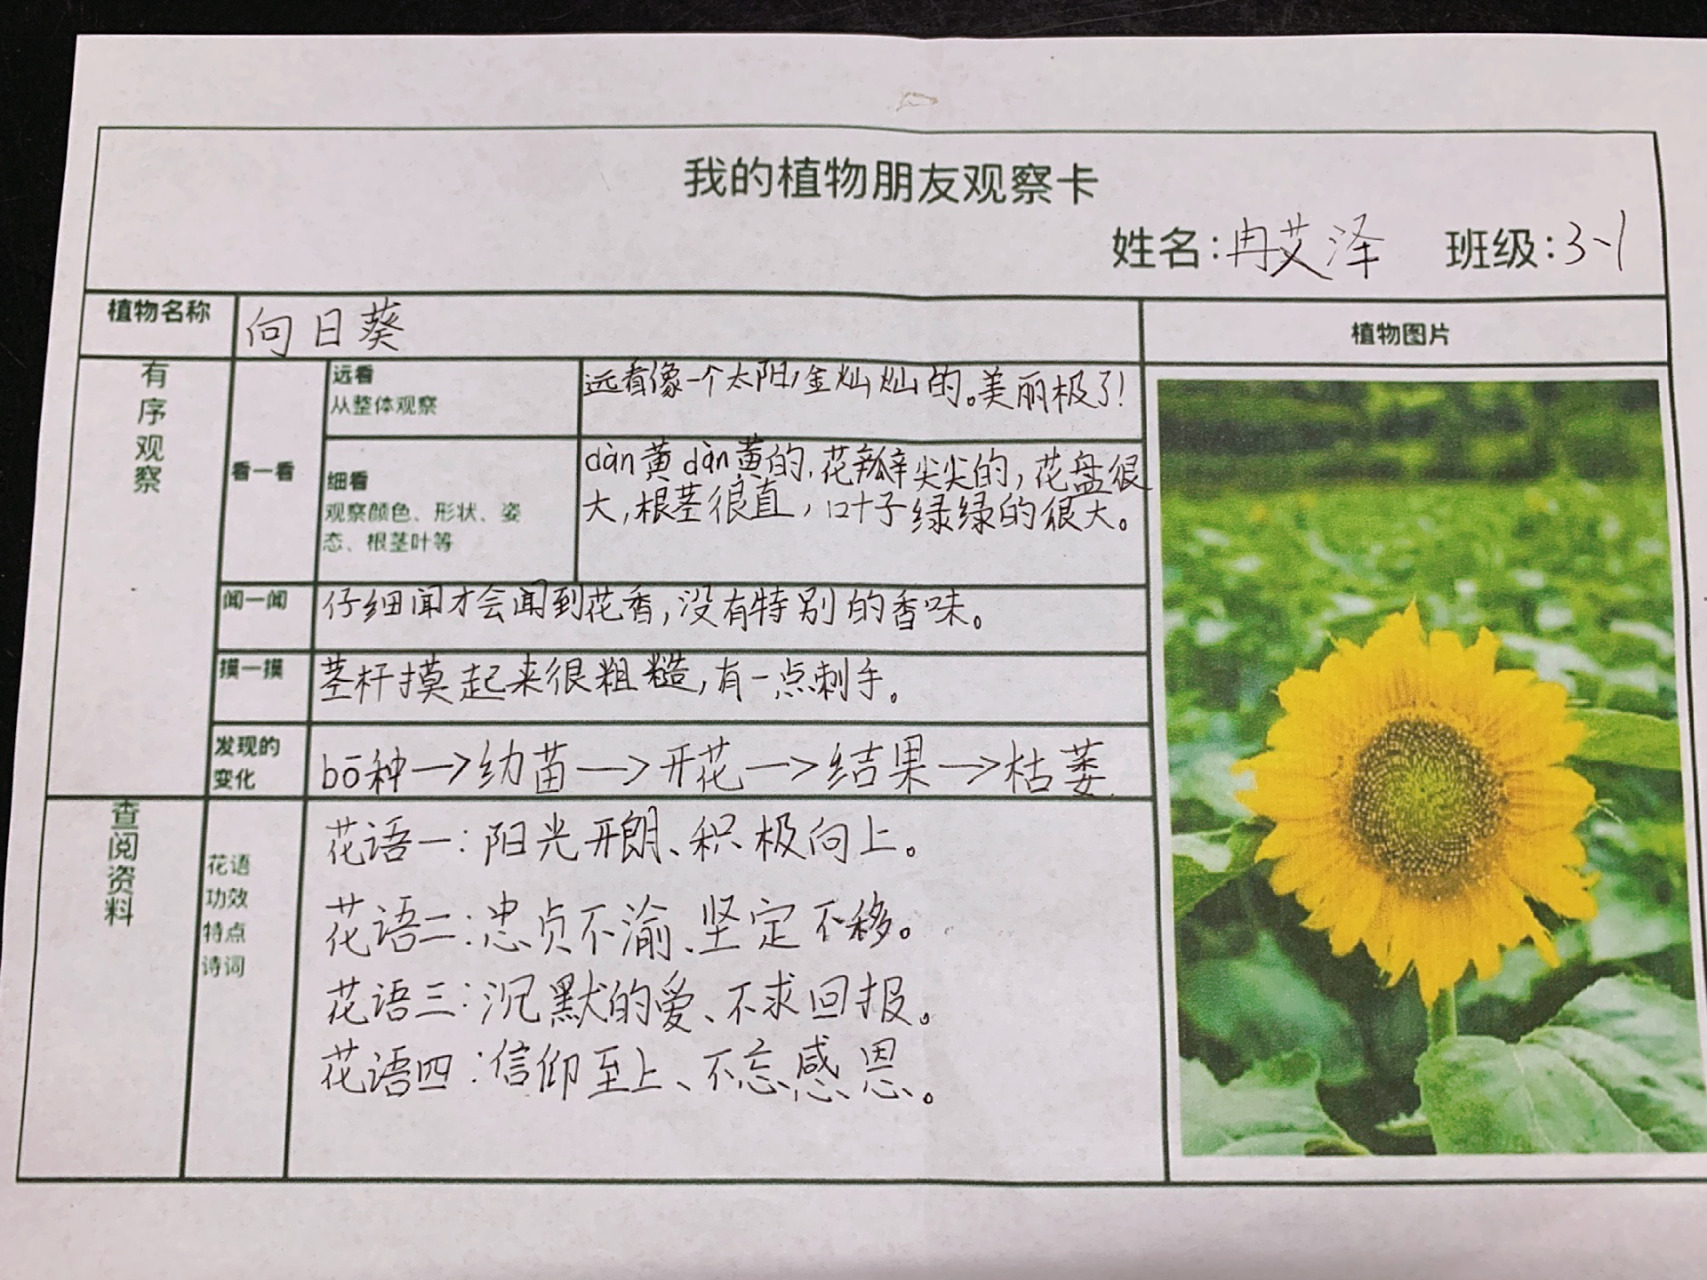 我的植物朋友观察卡
姓名:冉艾泽 班级:3-1
植物名称
向日葵
植物图片
有序观察
看一看
远看
从整体观察
远看像一个太阳,金灿灿的。美丽极了!
细看
观察颜色、形状、姿
态、根茎叶等
dàn黄dàn黄的,花瓣尖尖的,花盘很
大,根茎很直,叶子绿绿的很大。
闻一闻
仔细闻才会闻到花香,没有特别的香味。
摸一摸
茎杆摸起来很粗糙,有一点刺手。
发现的
变化
bō种→幼苗→开花→结果→枯萎.
查阅资料
花语
功效
特点
诗词
花语一:阳光开朗、积极向上。
花语二:忠贞不渝、坚定不移。
花语三:沉默的爱、不求回报。
花语四:信仰至上、不忘感恩。